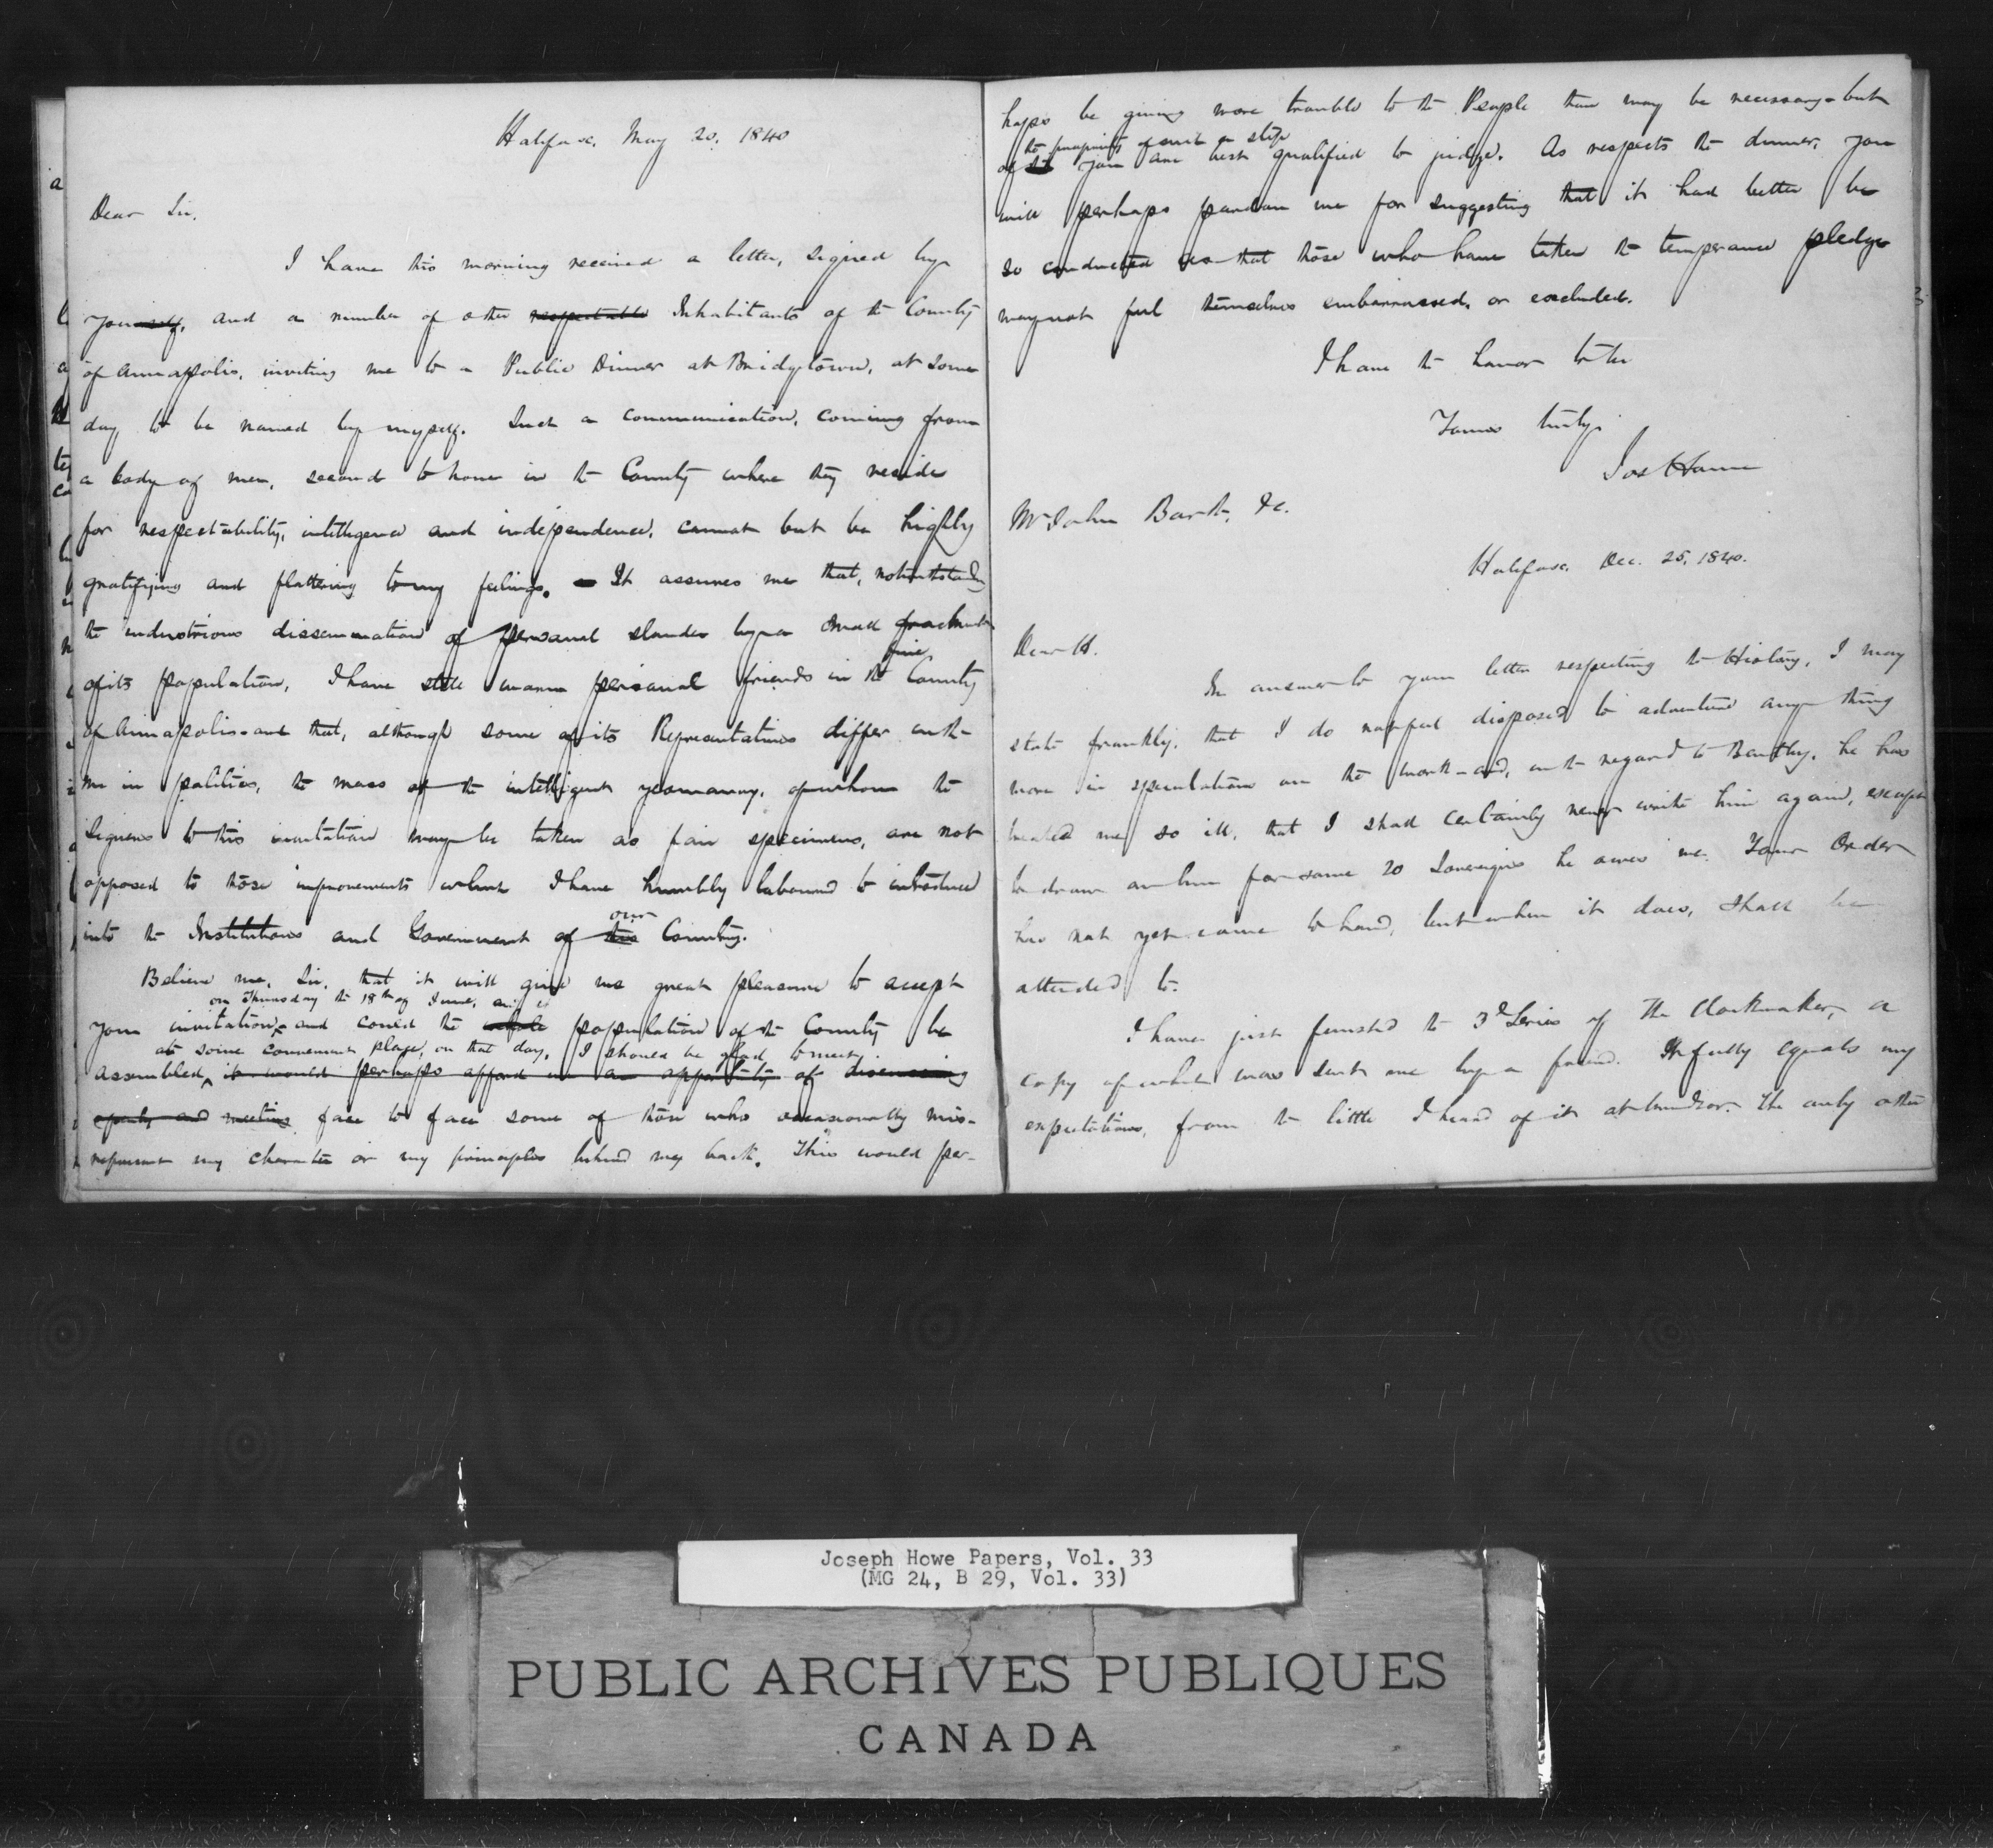 Halifax, May 20, 1840
Dear Sir,
I have this morning received a letter, signed by
yourself, and a number of other respectable Inhabitants of the County
of Annapolis, inviting me to a Public Dinner at Bridgetown, at some
day to be named by myself. Such a communication, coming from
a body of men, second to none in the County where they reside
for respectability, intelligence and independence, cannot but be highly
gratifying and flattering to my feelings. It assures me that, notwithstanding
the industrious dissemination of personal slander by a small
of its population, I have still warm personal friends in the fine County
of Annapolis and that, although some of its Representatives differ with
me in politics, the mass of the intelligent yeomanry, of whom the
signers to this invitation may be taken as fair specimens, are not
opposed to those improvements which I have humbly laboured to introduce
into the Institutions and Government of this our Country.
Believe me, Sir, that it will give me great pleasure to accept
on Thursday the 18th of June,
your invitation, and could the whole population of the County be
at some convenient place, on that day, I should be glad to meet
assembled, it would perhaps afford me an opportunity of discussing
openly and meeting face to face some of those who occasionally mis-
represent my character or my principles behind my back. This would per-
haps be giving more trouble to the People than may be necessary - but
the propriety of such a step
of you are best qualified to judge. As respects the dinner, you
will perhaps pardon me for suggesting that it had better be
so conducted as that those who have taken the temperance pledge
may not feel themselves embarrassed, or excluded.
I have the honor to be
Yours truly
Jos Howe
Mr John Bath, &c.
Halifax Dec. 25, 1840.
Dear H.
In answer to your letter respecting the History, I may
state frankly, that I do not feel disposed to adventure any thing
more in speculation on the work - and, with regard to Bentley, he has
treated me so ill, that I shall certainly never write him again, except
to draw on him for some 20 Sovereigns he owes me. Your Order
has not yet come to hand, but when it does, shall be
attended to.
I have just finished the 3d Series of The Clockmaker, a
copy of which was sent me by a friend. It fully equals my
expectations, from the little I heard of it at Windsor. The only other
Joseph Howe Papers, Vol. 33
(MG 24, B 29, Vol. 33)
PUBLIC ARCHIVES PUBLIQUES
CANADA